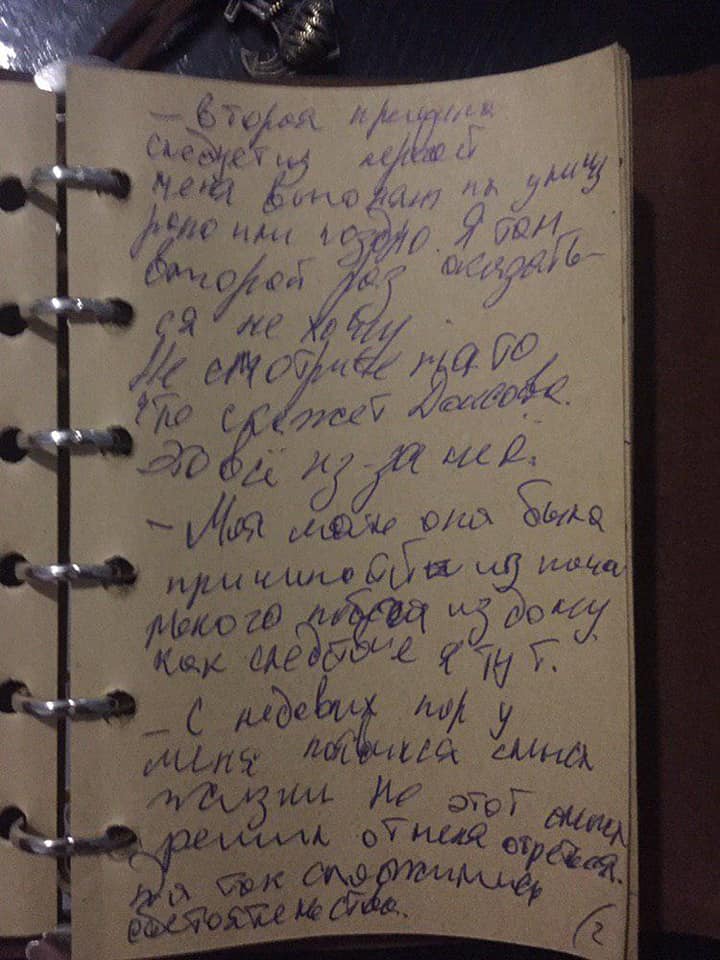 — Вторая причина
следует из первой
меня выгонят на улицу
рано или поздно. Я там
второй раз оказать-
ся не хочу
Не смотрите на то
что скажет
Это всё из-за неё.
— Моя мать она была
причиной из нача
льного побега из дому
как следствие я тут.
— С недавних пор у
меня появился смысл
жизни но этот смысл
решил от меня отречься.
так сложились
обстоятельства.
(2